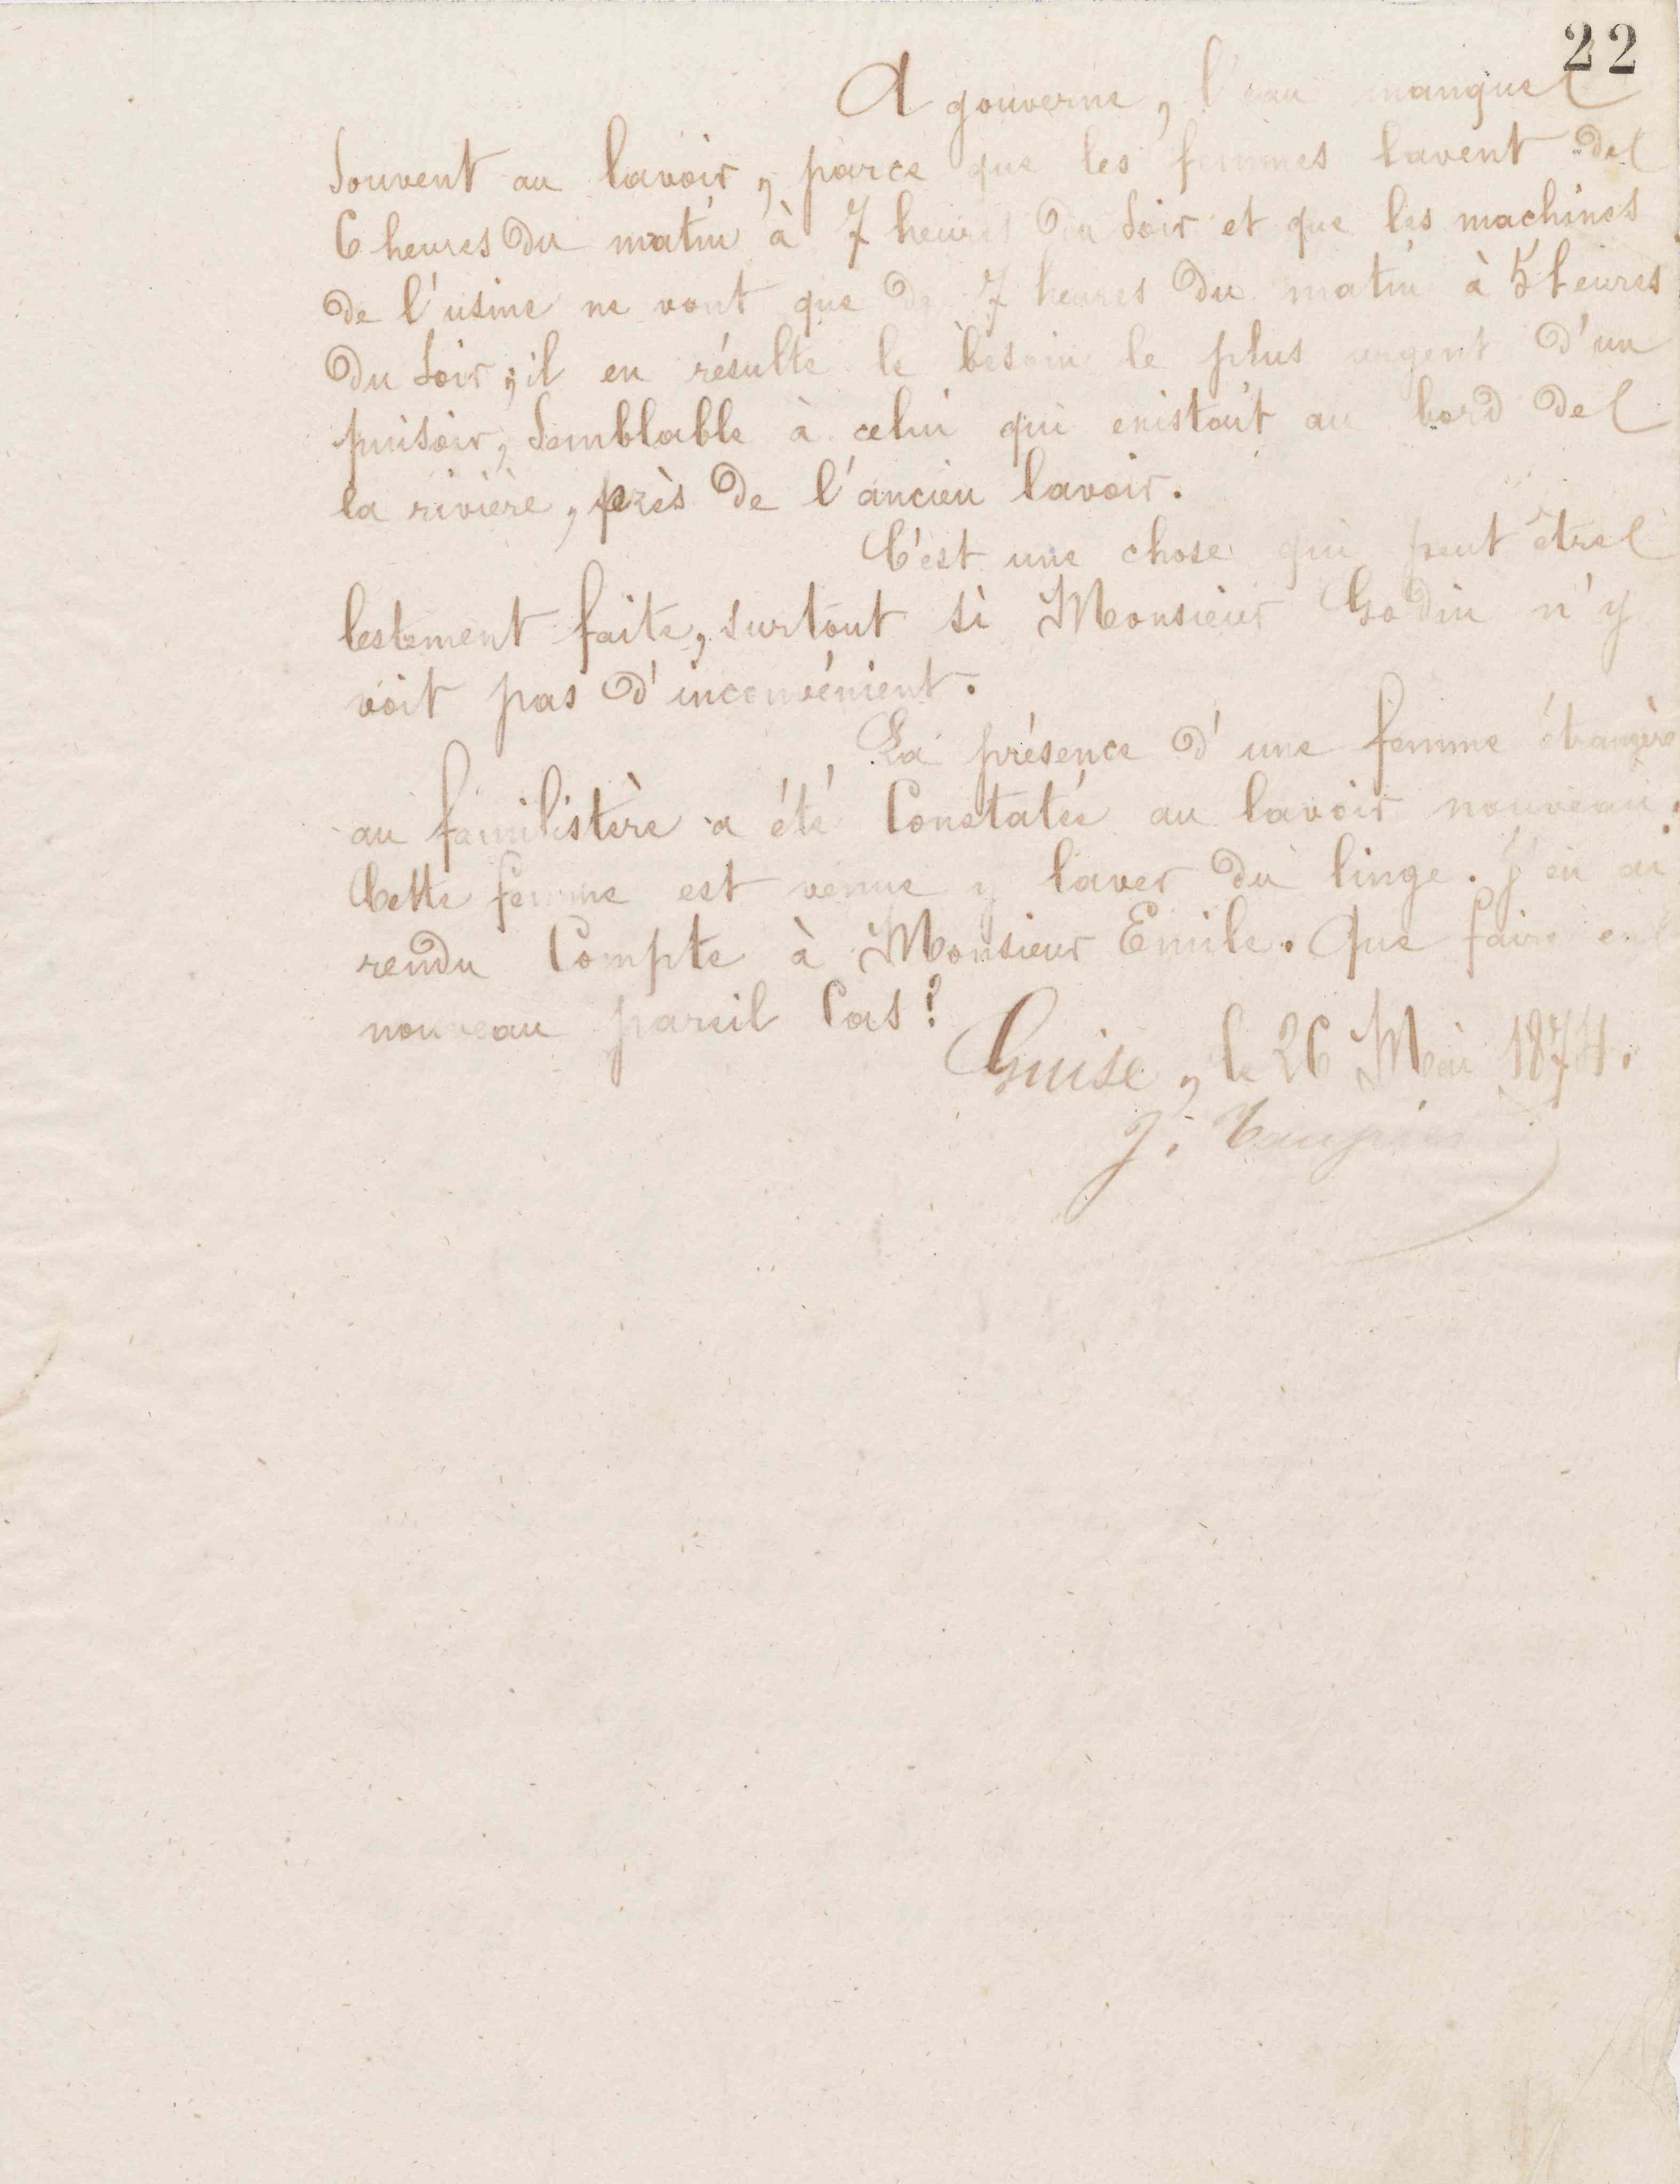 22
A gouverne, l'eau manque
souvent au lavoir, parce que les femmes lavent de
6 heures du matin à 7 heures du soir et que les machines
de l'usine ne vont que de 7 heures du matin à 5 heures
du soir; il en résulte le besoin le plus urgent d'un
puisoir, semblable à celui qui existait au bord de
la rivière, près de l'ancien lavoir.
C'est une chose qui peut être
lestement faite, surtout si Monsieur Godin n'y
voit pas d'inconvénient.
La présence d'une femme étrangère
au familistère a été constatée au lavoir nouveau.
Cette femme est venue y laver du linge. J'en ai
rendu compte à Monsieur Emile. Que faire en
nouveau pareil cas?
Guise, le 26 Mai 1874.
J.